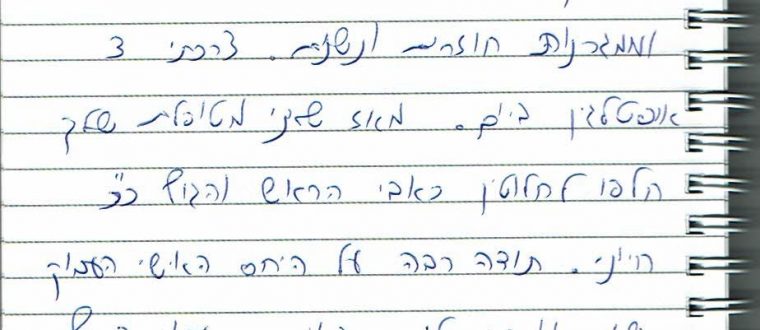 וממגרנות חוזרות ונשנות. צרכתי 3
אופטלגין ביום. מאז שאני מטופלת שלך
חלפו לחלוטין כאבי הראש והגוף כ"כ
חיוני. תודה רבה על היחס האישי העמוק